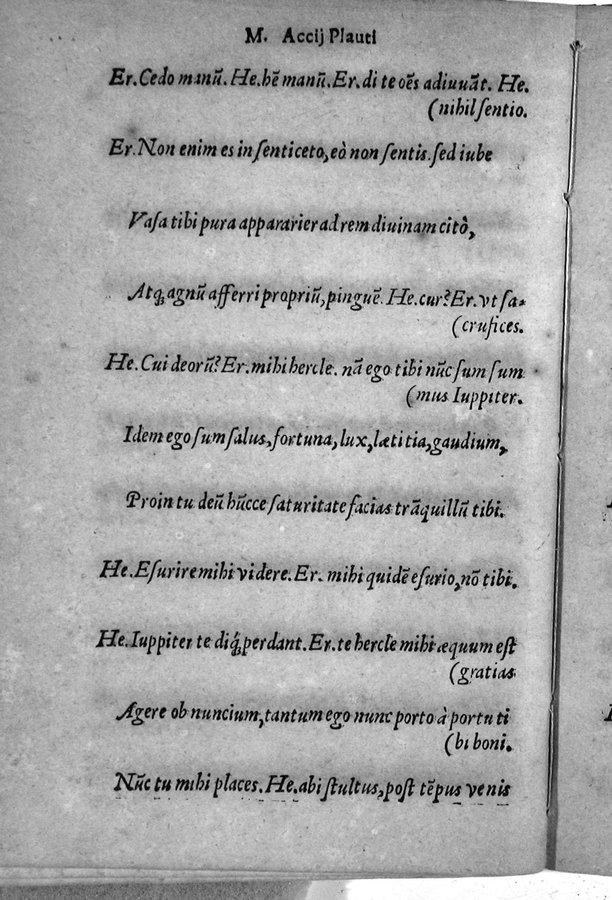 M. Accij Plauti
Er. Cedo manũ. He. hẽ manũ. Er. di te oẽs adiuuãt. He.
(nihil ſentio.
Er. Non enim es in ſenticeto, eò non ſentis. ſed iube
Vaſa tibi pura appararier ad rem diuinam citò,
Atq; agnũ afferri propriũ, pinguẽ. He. cur? Er. vt ſa-
(crufices.
He. Cui deorũ? Er. mihi hercle. nã ego tibi nũc ſum ſum
(mus Iuppiter.
Idem ego ſum ſalus, fortuna, lux, lætitia, gaudium,
Proin tu deũ hũcce ſaturitate facias trãquillũ tibi.
He. Eſurire mihi videre. Er. mihi quidẽ eſurio, nõ tibi.
He. Iuppiter te diq́; perdant. Er. te hercle mihi æquum eſt
(gratias
Agere ob nuncium, tantum ego nunc porto à portu ti
(bi boni.
Nũc tu mihi places. He. abi ſtultus, poſt tẽpus venis